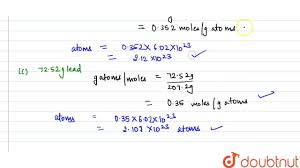 = 0.352 moles/g atoms
atoms = 0.352 X 6.02 X 10 23
= 2.12 X 10 23
(c) 72.52g lead
g atoms/moles = 72.52g
207.2g
= 0.35 moles/g atoms
atoms = 0.35 X 6.02 X 10 23
= 2.107 X 10 23 atoms
doubtnut